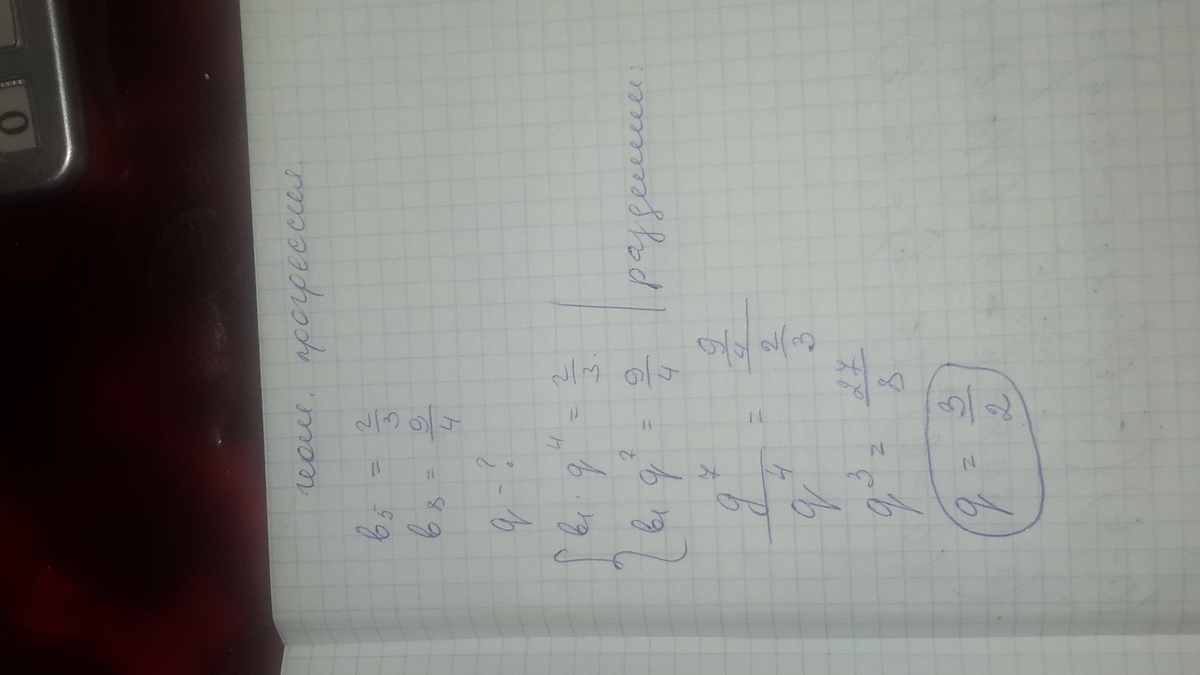 геом. прогрессия.
b₅ = 2/3
b₈ = 9/4
q - ?
{ b₁ · q⁴ = 2/3.
{ b₁ q⁷ = 9/4 | разделим.
q⁷/q⁴ = (9/4)/(2/3)
q³ = 27/8
q = 3/2
0